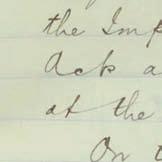 the Imp
Ack a
at the
On